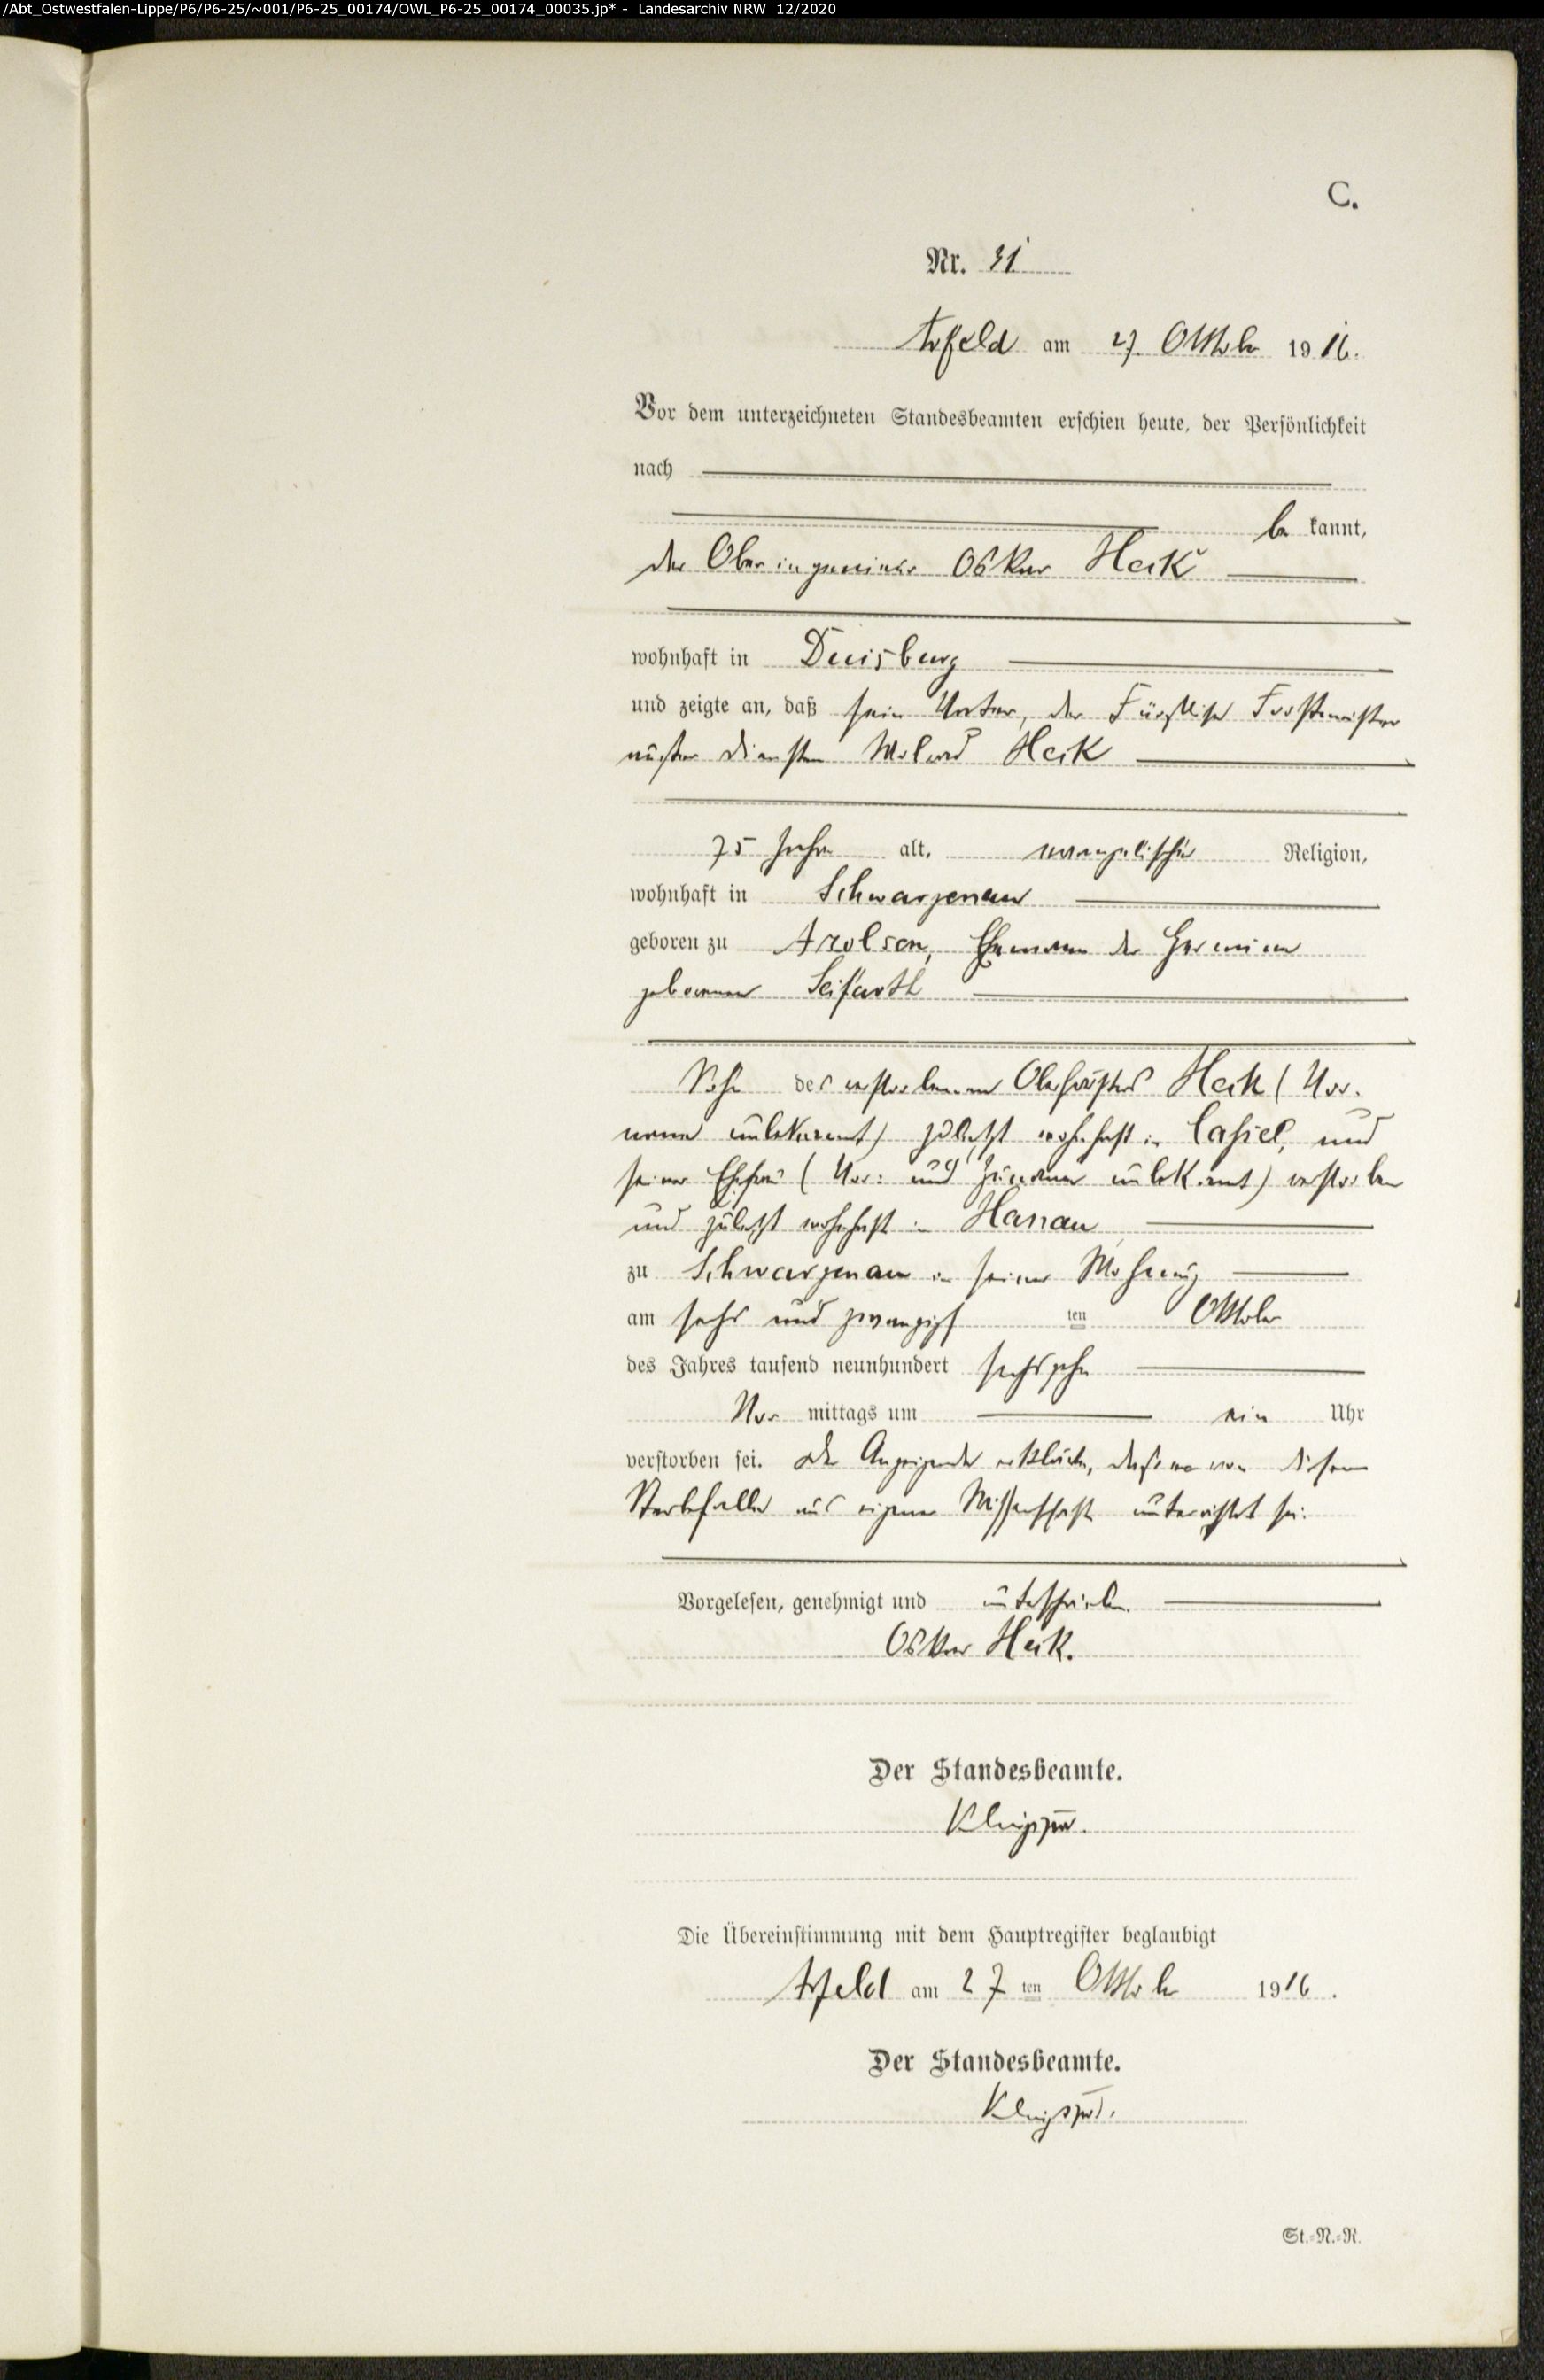 /Abt_Ostwestfalen-Lippe/P6/P6-25/~001/P6-25_00174/OWL_P6-25_00174_00035.jp* - Landesarchiv NRW 12/2020
C.
Nr. 31
Arfeld am 27. Oktober 1916.
Vor dem unterzeichneten Standesbeamten erschien heute, der Persönlichkeit
nach
be kannt,
der Oberingenieur Oskar Heik
wohnhaft in Duisburg
und zeigte an, daß sein Vater, der Fürstliche Forstmeister
außer Diensten Heik
75 Jahre alt, evangelischer Religion,
wohnhaft in Schwarzenau
geboren zu Arolsen, Ehemann der Hermine
geborenen Seifarth
Sohn des verstorbenen Oberförsters Heik (Vor-
name unbekannt) zuletzt wohnhaft in Cassel, und
seiner Ehefrau (Vor: und Zuname unbekannt) verstorben
und zuletzt wohnhaft in Hanau
zu Schwarzenau in seiner Wohnung
am sechs und zwanzigsten Oktober
des Jahres tausend neunhundert sechszehn
Vor mittags um ein Uhr
verstorben sei. Der Anzeigende erklärte, daß er von diesem
Sterbefalle aus eigener Wissenschaft unterrichtet sei.
Vorgelesen, genehmigt und unterschrieben.
Oskar Heik.
Der Standesbeamte.
Die Übereinstimmung mit dem Hauptregister beglaubigt
Arfeld am 27 ten Oktober 1916.
Der Standesbeamte.
St.-N.-R.